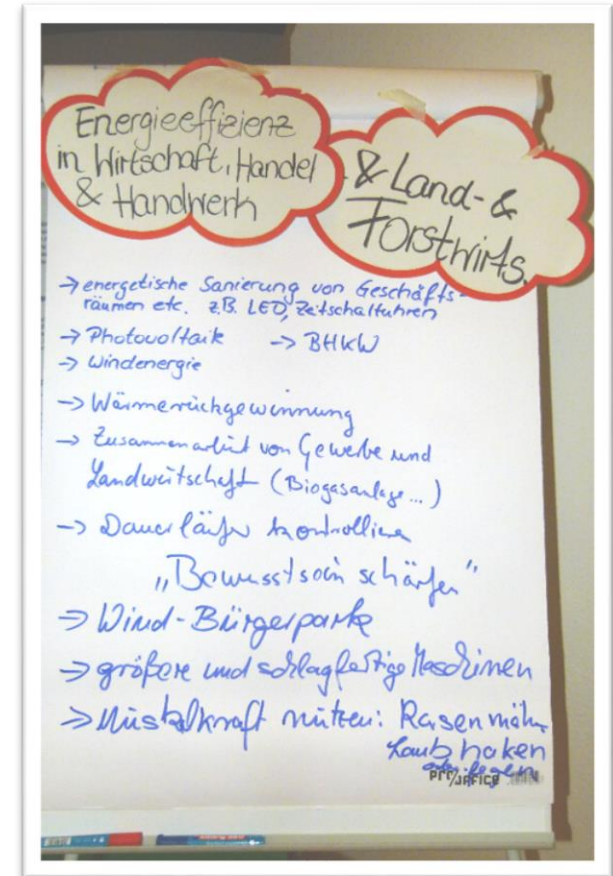 Energieeffizienz
in Wirtschaft, Handel
& Handwerk
& Land- &
Forstwirts.
→ energetische Sanierung von Geschäfts-
räumen etc. z.B. LED, Zeitschaltuhren
→ Photovoltaik → BHKW
→ Windenergie
→ Wärmerückgewinnung
→ Zusammenarbeit von Gewerbe und
Landwirtschaft (Biogasanlage...)
→ Dauerläufer kontrollieren
„Bewusstsein schärfen"
→ Wind-Bürgerparke
→ größere und schlagfertige Maschinen
→ Muskelkraft nutzen: Rasenmäh
Laub haken
oder fegen
pro/office